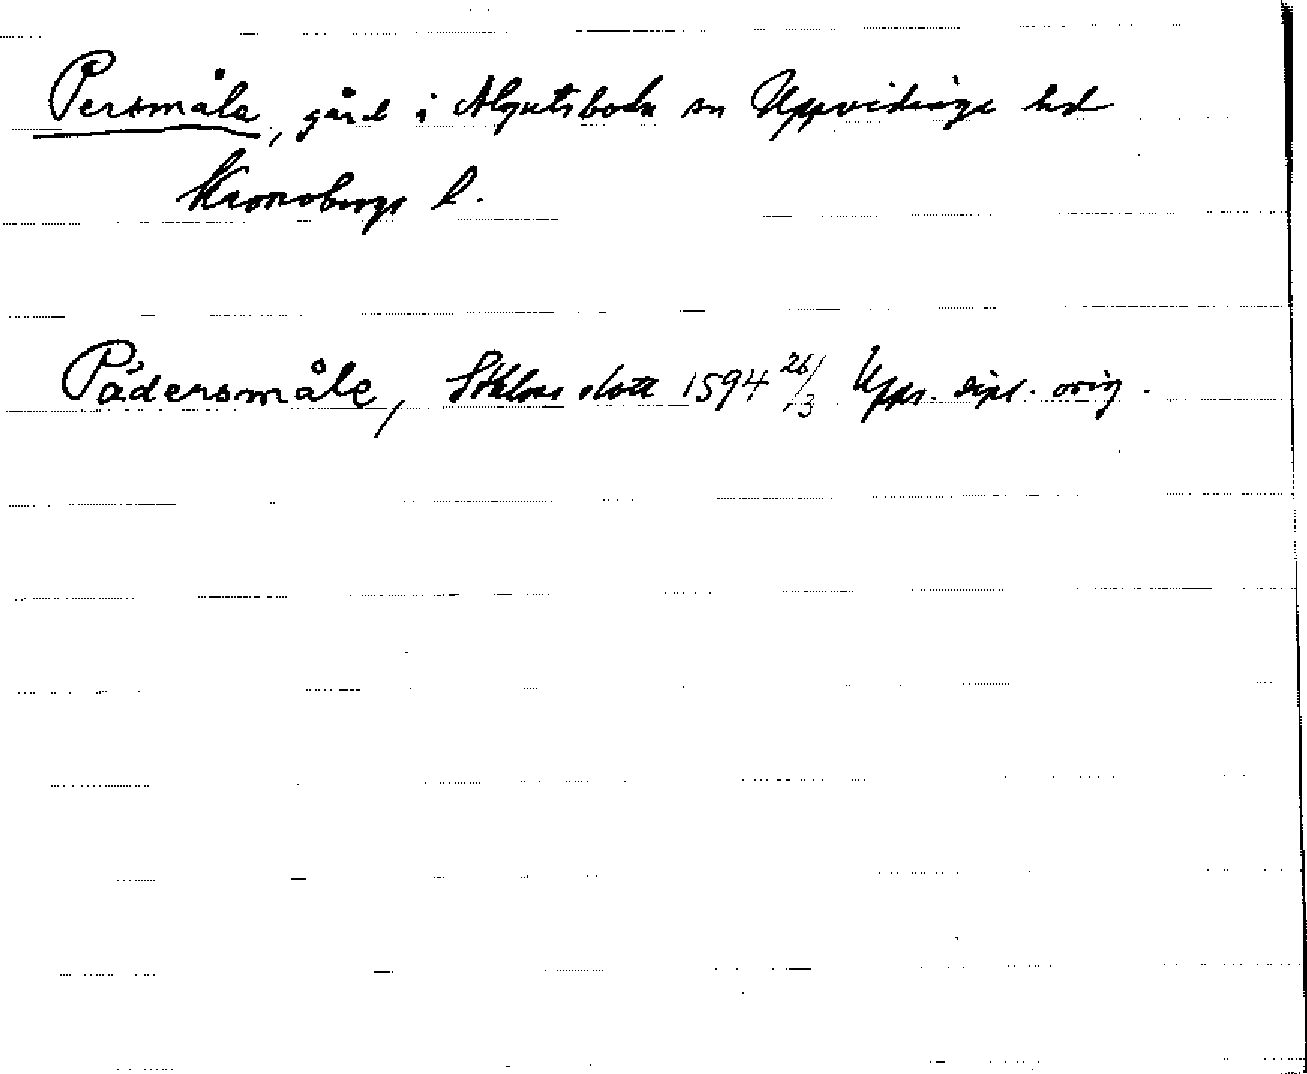 Persmåla, gård i Algutsboda sn Uppvidinge hd
Kronobergs l.
Pädersmåle, Sthlms slott 1594 26/3 Upps. dipl. orig.